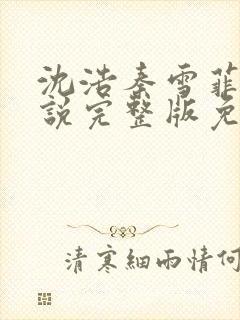 沈浩秦雪菲
說完整版免
清寒細雨情何